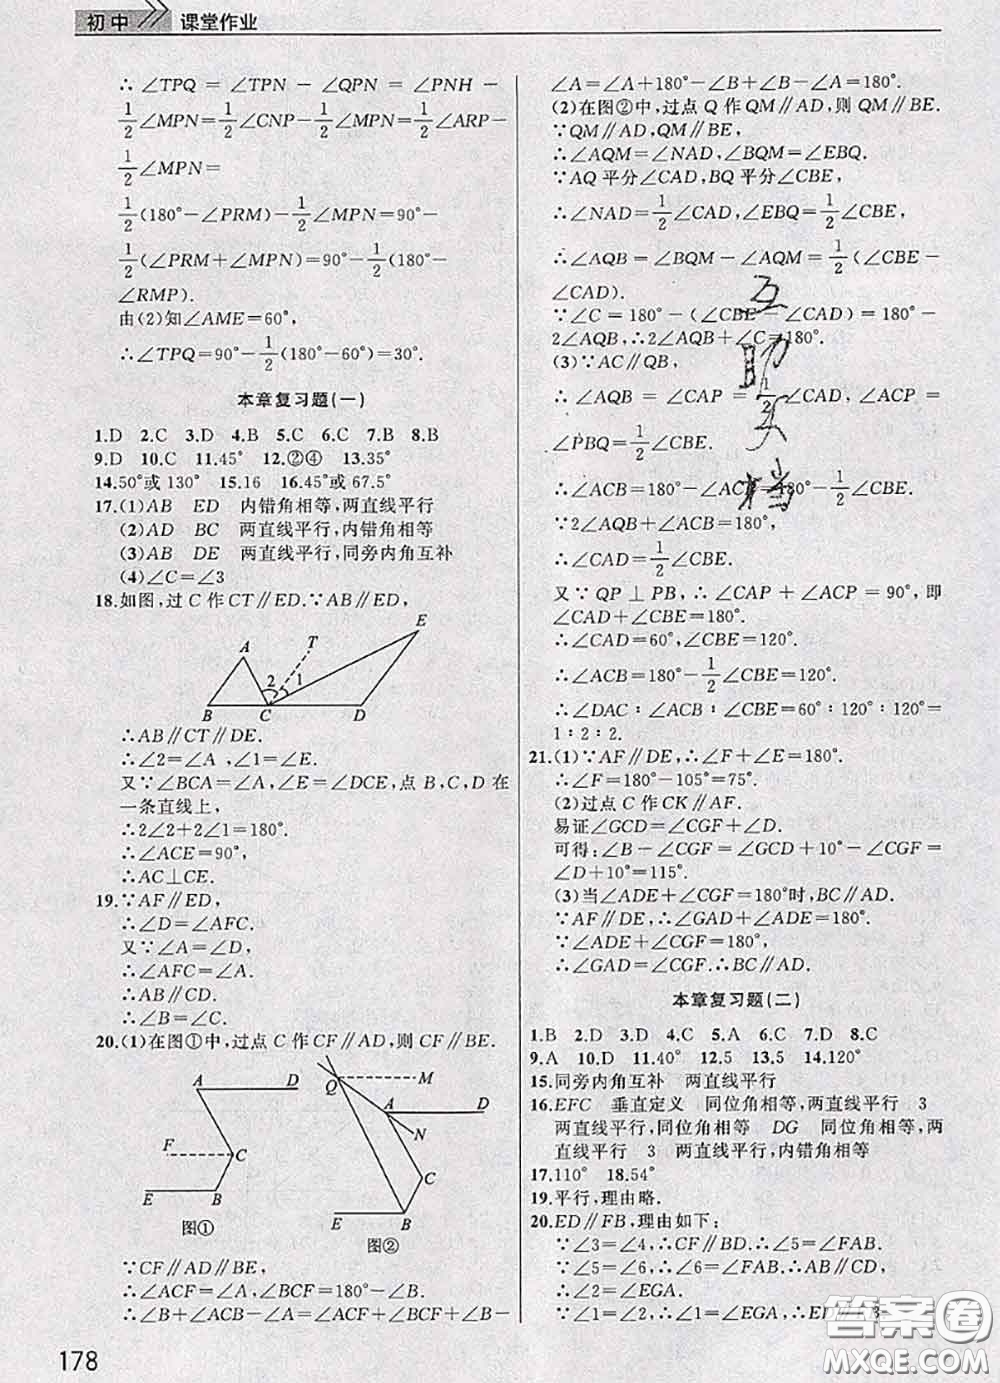 初中 课堂作业
∴∠TPQ=∠TPN-∠QPN=∠PNH-
1/2∠MPN=1/2∠CNP-1/2∠MPN=1/2∠ARP-
1/2∠MPN=
1/2(180°-∠PRM)-1/2∠MPN=90°-
1/2(∠PRM+∠MPN)=90°-1/2(180°-
∠RMP).
由(2)知∠AME=60°,
∴∠TPQ=90°-1/2(180°-60°)=30°.
本章复习题(一)
1.D 2.C 3.D 4.B 5.C 6.C 7.B 8.B
9.D 10.C 11.45° 12.②④ 13.35°
14.50°或130° 15.16 16.45°或67.5°
17.(1)AB ED 内错角相等,两直线平行
(2)AD BC 两直线平行,内错角相等
(3)AB DE 两直线平行,同旁内角互补
(4)∠C=∠3
18.如图,过C作CT∥ED.∵AB∥ED,
A B C D E T 2 1
∴AB∥CT∥DE.
∴∠2=∠A,∠1=∠E.
又∵∠BCA=∠A,∠E=∠DCE,点B,C,D在
一条直线上,
∴2∠2+2∠1=180°.
∴∠ACE=90°,
∴AC⊥CE.
19.∵AF∥ED,
∴∠D=∠AFC.
又∵∠A=∠D,
∴∠AFC=∠A.
∴AB∥CD.
∴∠B=∠C.
20.(1)在图①中,过点C作CF∥AD,则CF∥BE.
A D F C E B
图①
Q M A D N C E B
图②
∵CF∥AD∥BE,
∴∠ACF=∠A,∠BCF=180°-∠B.
∴∠B+∠ACB-∠A=∠ACF+∠BCF+∠B-
178
∠A=∠A+180°-∠B+∠B-∠A=180°.
(2)在图②中,过点Q作QM∥AD,则QM∥BE.
∵QM∥AD,QM∥BE,
∴∠AQM=∠NAD,∠BQM=∠EBQ.
∵AQ平分∠CAD,BQ平分∠CBE,
∴∠NAD=1/2∠CAD,∠EBQ=1/2∠CBE,
∴∠AQB=∠BQM-∠AQM=1/2(∠CBE-
∠CAD).
∵∠C=180°-(∠CBE-∠CAD)=180°-
2∠AQB,∴2∠AQB+∠C=180°.
(3)∵AC∥QB,
∴∠AQB=∠CAP=1/2∠CAD,∠ACP=
∠PBQ=1/2∠CBE.
∴∠ACB=180°-∠ACP=180°-1/2∠CBE.
∵2∠AQB+∠ACB=180°,
∴∠CAD=1/2∠CBE.
又∵QP⊥PB,∴∠CAP+∠ACP=90°,即
∠CAD+∠CBE=180°.
∴∠CAD=60°,∠CBE=120°.
∴∠ACB=180°-1/2∠CBE=120°.
∴∠DAC∶∠ACB∶∠CBE=60°∶120°∶120°=
1∶2∶2.
21.(1)∵AF∥DE,∴∠F+∠E=180°.
∴∠F=180°-105°=75°.
(2)过点C作CK∥AF.
易证∠GCD=∠CGF+∠D.
可得:∠B-∠CGF=∠GCD+10°-∠CGF=
∠D+10°=115°.
(3)当∠ADE+∠CGF=180°时,BC∥AD.
∵AF∥DE,∴∠GAD+∠ADE=180°.
∵∠ADE+∠CGF=180°,
∴∠GAD=∠CGF.∴BC∥AD.
本章复习题(二)
1.B 2.D 3.D 4.C 5.A 6.C 7.D 8.C
9.A 10.D 11.40° 12.5 13.5 14.120°
15.同旁内角互补 两直线平行
16.EFC 垂直定义 同位角相等,两直线平行 3
两直线平行,同位角相等 DG 同位角相等,两
直线平行 3 两直线平行,内错角相等
17.110° 18.54°
19.平行,理由略.
20.ED∥FB,理由如下:
∵∠3=∠4,∴CF∥BD.∴∠5=∠FAB.
∵∠5=∠6,∴∠6=∠FAB.∴AB∥CD.
∴∠2=∠EGA.
∵∠1=∠2,∴∠1=∠EGA,∴ED∥FB.
互
助
文
档
答案圈
MXQE.COM